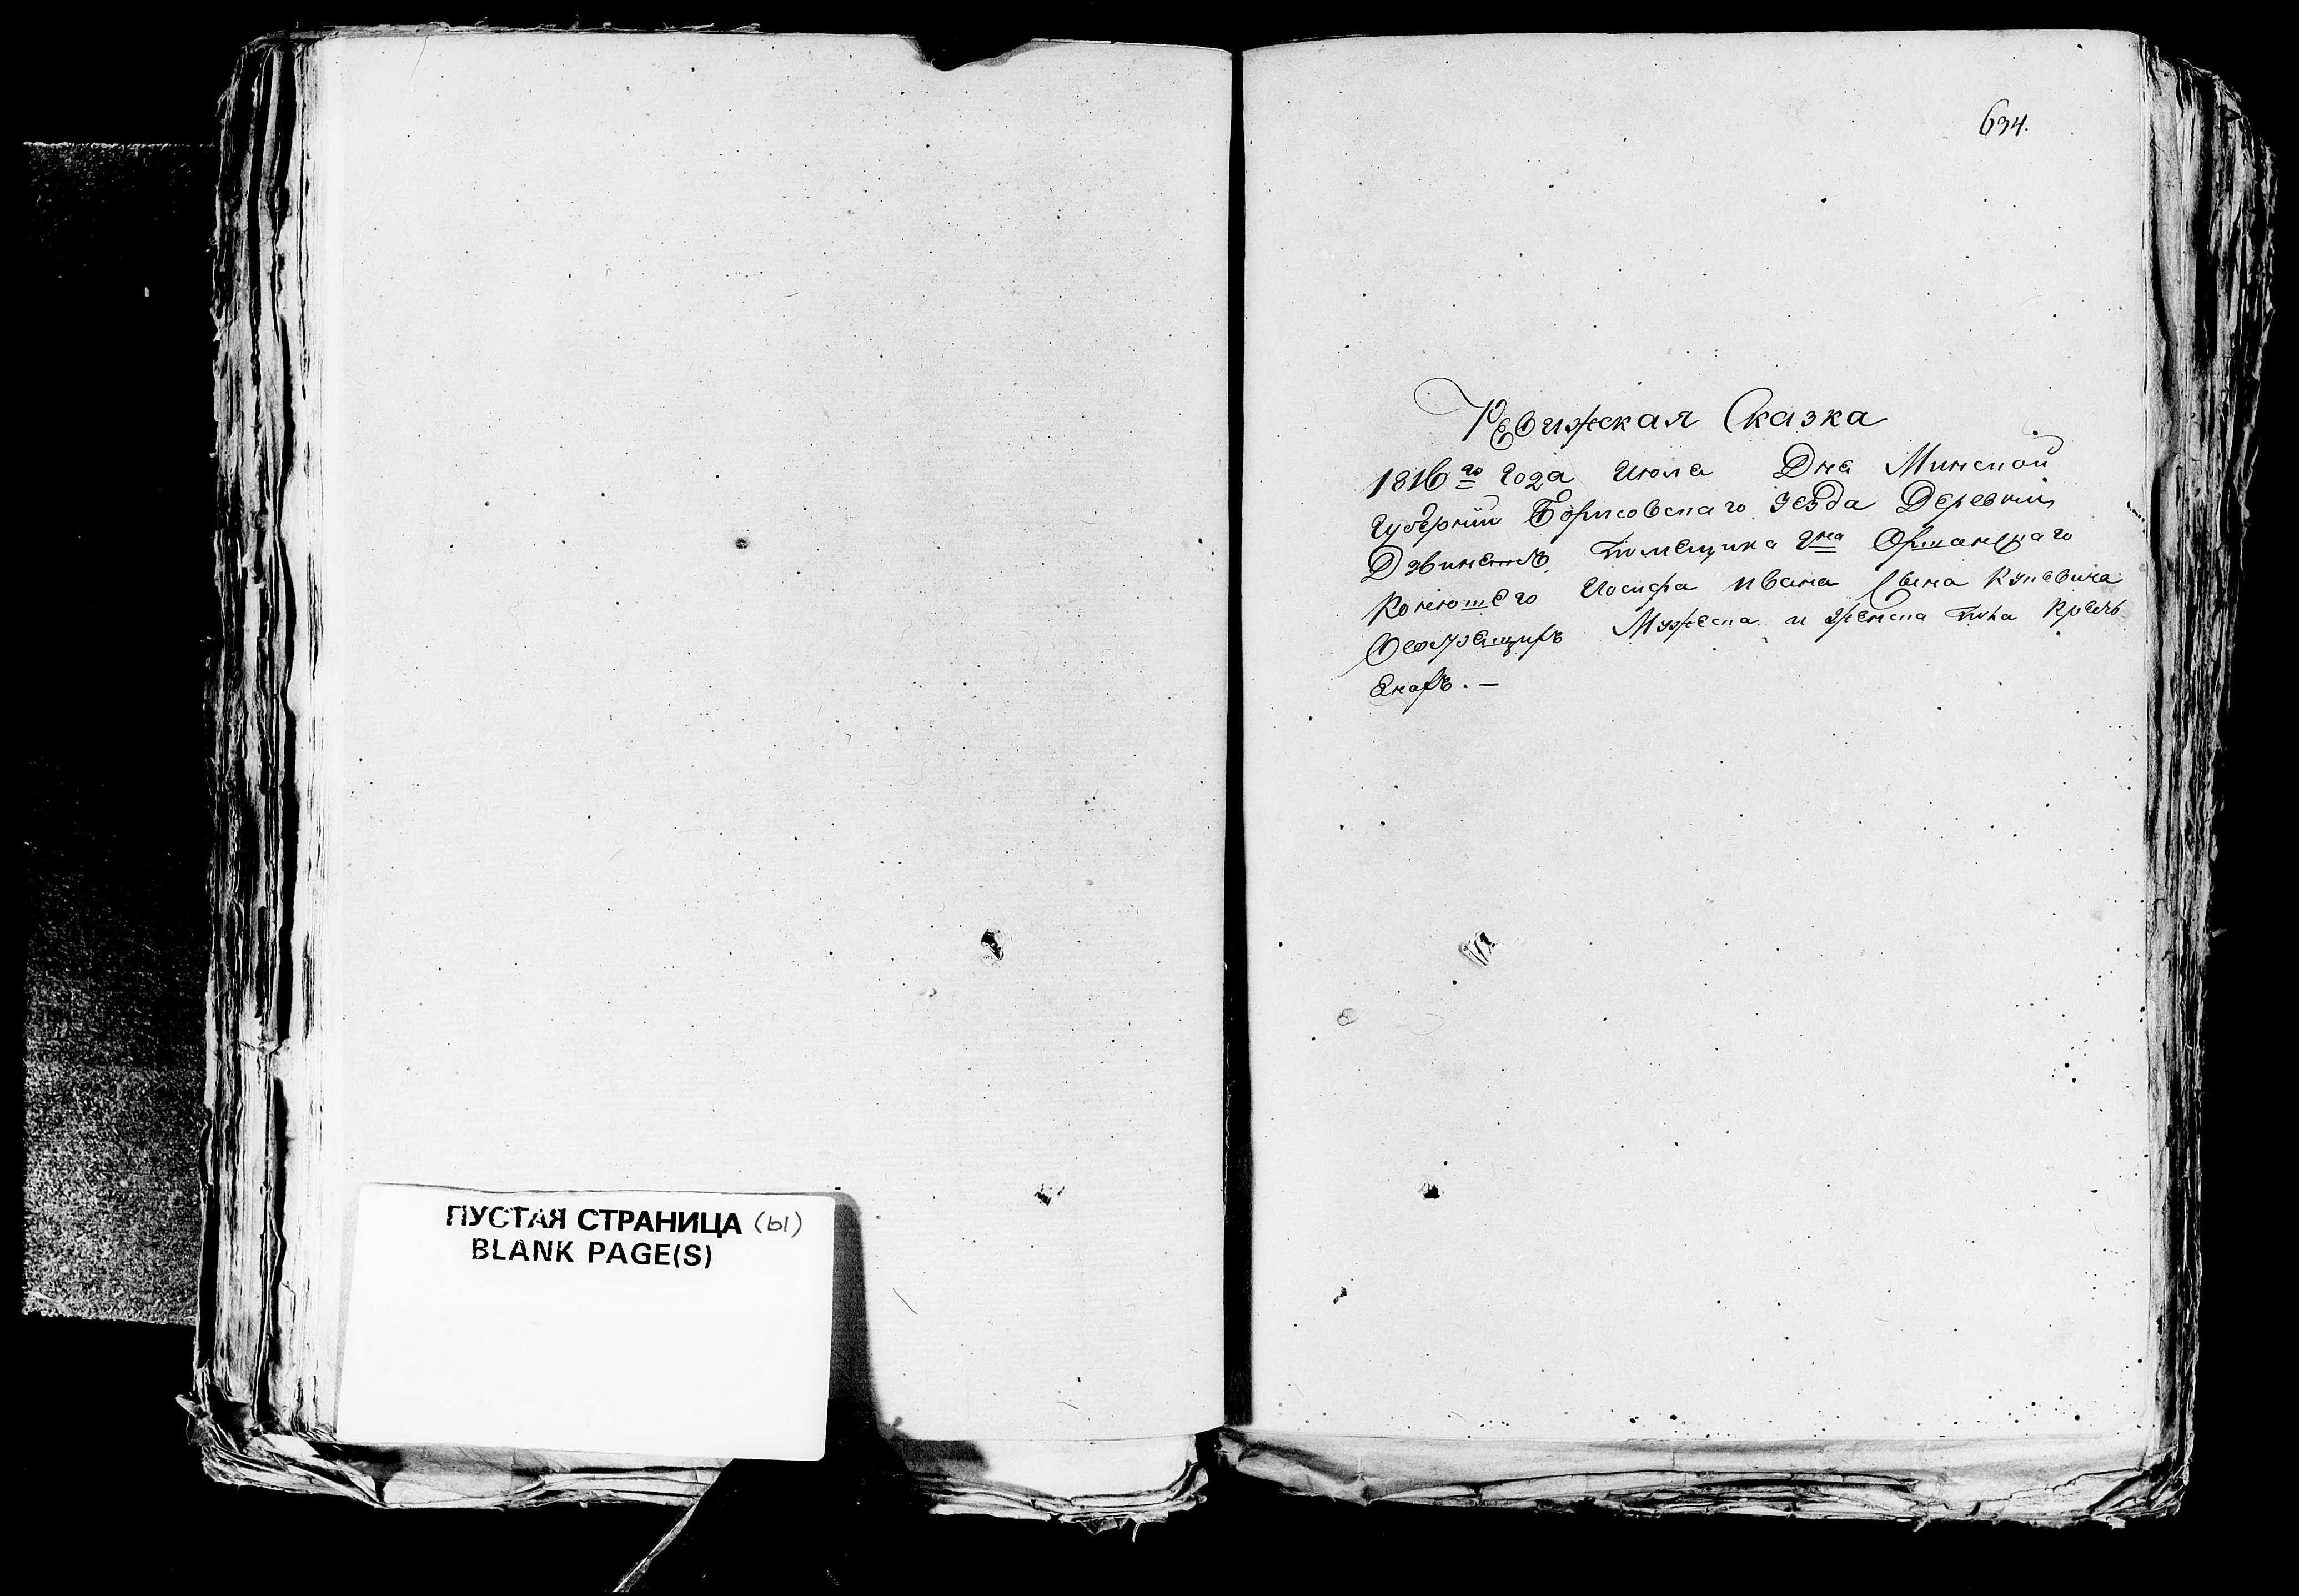 ПУСТАЯ СТРАНИЦА (ы)
BLANK PAGE(S)
634.
Ревижская Сказка
1816го года Июля Дня Минской
Губернии Борисовскаго уезда Деревни
Помещика Гна Оршанскаго
Конюшего Иосифа Ивана Сына
Мужеска и женска пола Крест
Енахъ. —